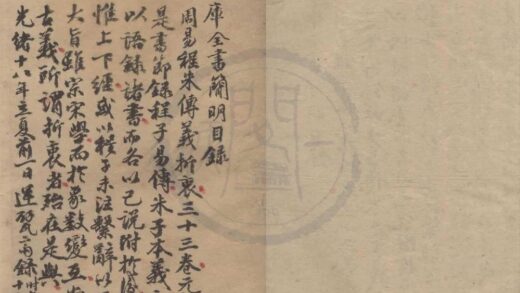 庫全書簡明目錄
周易程朱傳義折衷三十三卷元
是書節錄程子易傳朱子本義
以語錄諸書而各以己說附於後
惟上下經或以程子未注繫辭以
大旨雖宗宋學而於象數變互
古義所謂折衷者殆在是與
光緒十八年立夏前一日運甓齋錄